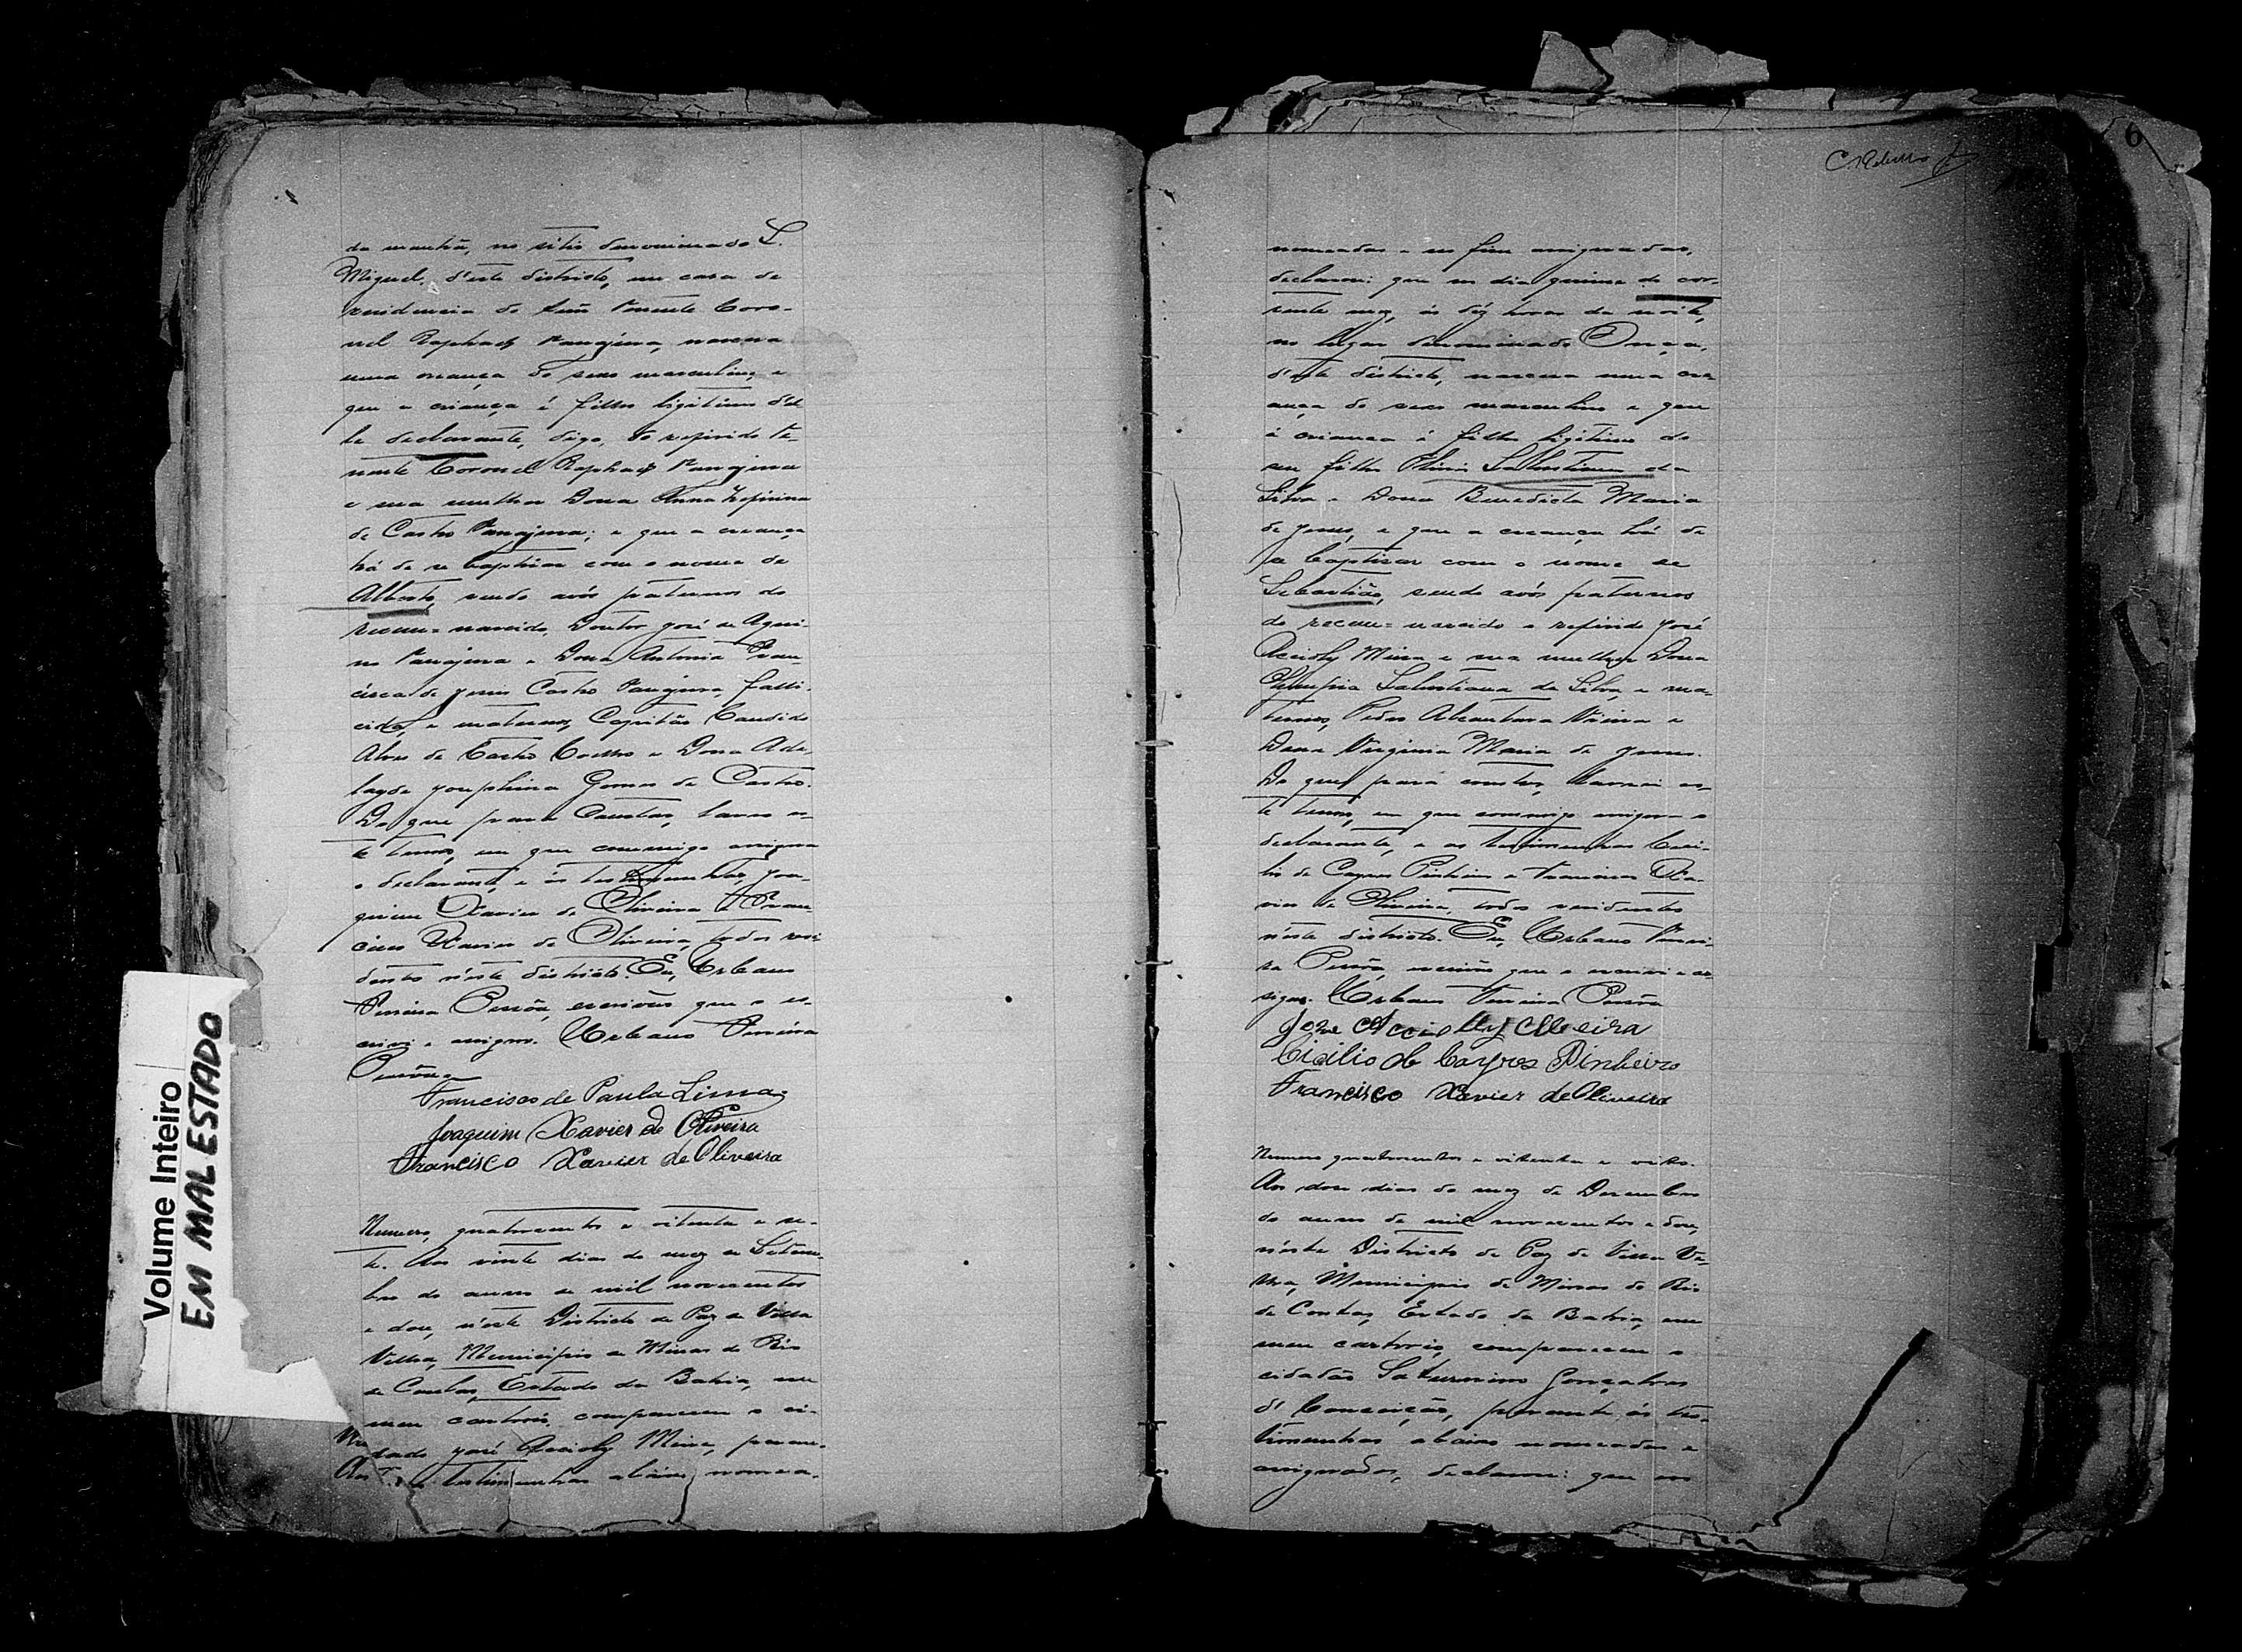 da manhã, no sitio denominado S.
Miguel, d'este districto, em casa de
residencia do Tenente Coro-
nel Raphael Tanajura, nasceu
uma creança do sexo masculino, e
que a criança é filho legitimo d'el-
le declarante, digo, do referido Te-
nente Coronel Raphael Tanajura
e sua mulher Dona Anna Zefirina
de Castro Tanajura; e que a creança
há de se baptisar com o nome de
Alberto, sendo avós paternos do
recem=nascido, Doutor José de Aqui-
no Tanajura e Dona Antonia Fran-
cisca de Jesus Castro Tanajura, falle-
cidos, e maternos, Capitão Candido
Alves de Castro Coelho e Dona Ade-
layde Josephina Gomes de Castro.
Do que para constar, lavro es-
te termo, em que commigo assigna
o declarante e ás testemunhas, Joa-
quim Xavier de Oliveira e Fran-
cisco Xavier de Oliveira, todos resi-
dentes n'este districto. Eu, Urbano
Ferreira Pessôa, escrivão que o es-
crevi e assigno. Urbano Ferreira
Pessôa.
Francisco de Paula Lima
Joaquim Xavier de Oliveira
Francisco Xavier de Oliveira
Numero quatrocentos e oitenta e se-
te. Aos vinte dias do mez de Setem-
bro do anno de mil novecentos
e dous, n'este Districto de Paz de Villa
Velha, Municipio de Minas do Rio
de Contas, Estado da Bahia, em
meu cartorio compareceu o ci-
dadão José Accioly Meira, peran-
testemunhas abaixo nomea-
Volume Inteiro
EM MAL ESTADO
6
nomeadas e no fim assignadas,
declarou: que no dia quinze do cor-
rente mez, ás déz horas da noite,
no lugar denominado Onça,
d'este districto, nasceu uma cre-
ança do sexo masculino e que
a criança é filho legitimo do
seu filho Salustiano da
Silva e Dona Benedicta Maria
de Jesus, e que a creança há de
se baptisar com o nome de
Sebastião, sendo avós paternos
do recem=nascido o referido José
Accioly Meira e sua mulher Dona
Olympia Salustiana da Silva, e ma-
ternos, Pedro Alcantara Vieira e
Dona Virginia Maria de Jesus.
Do que pará constar, lavrei es-
te termo, em que commigo assigna o
declarante, e as testemunhas Ceci-
lio de Cayres Pinheiro e Francisco Xa-
vier de Oliveira, todos residentes
n'este districto. Eu, Urbano Ferrei-
ra Pessôa, escrivão que o escrevi e as-
signo. Urbano Ferreira Pessôa
Jose Acciolly Meira
Cicilio de Cayres Pinheiro
Francisco Xavier de Oliveira
Numero quatrocentos e oitenta e oito.
Aos dose dias do mez de Dezembro
do anno de mil novecentos e dous,
n'este Districto de Paz de Villa Ve-
lha, Municipio de Minas do Rio
de Contas, Estado da Bahia, em
meu cartorio, compareceu o
cidadão Saturnino Gonçalves
da Conceição, perante ás tes-
timunhas abaixo nomeadas e
assignados, declarou: que no